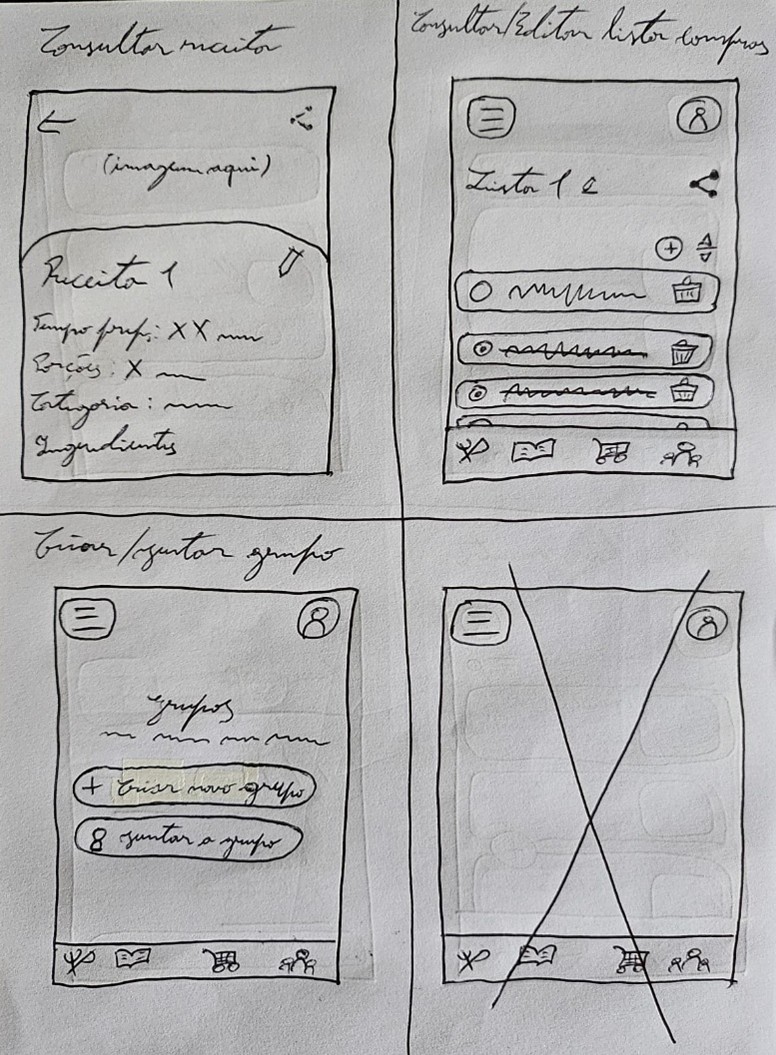 Consultar receita
(imagem aqui)
Receita 1
Tempo prep.: XX
Porções: X
Categoria:
Ingredientes
Consultar/Editar lista compras
Lista 1
Criar/juntar grupo
Grupos
+ Criar novo grupo
Juntar a grupo